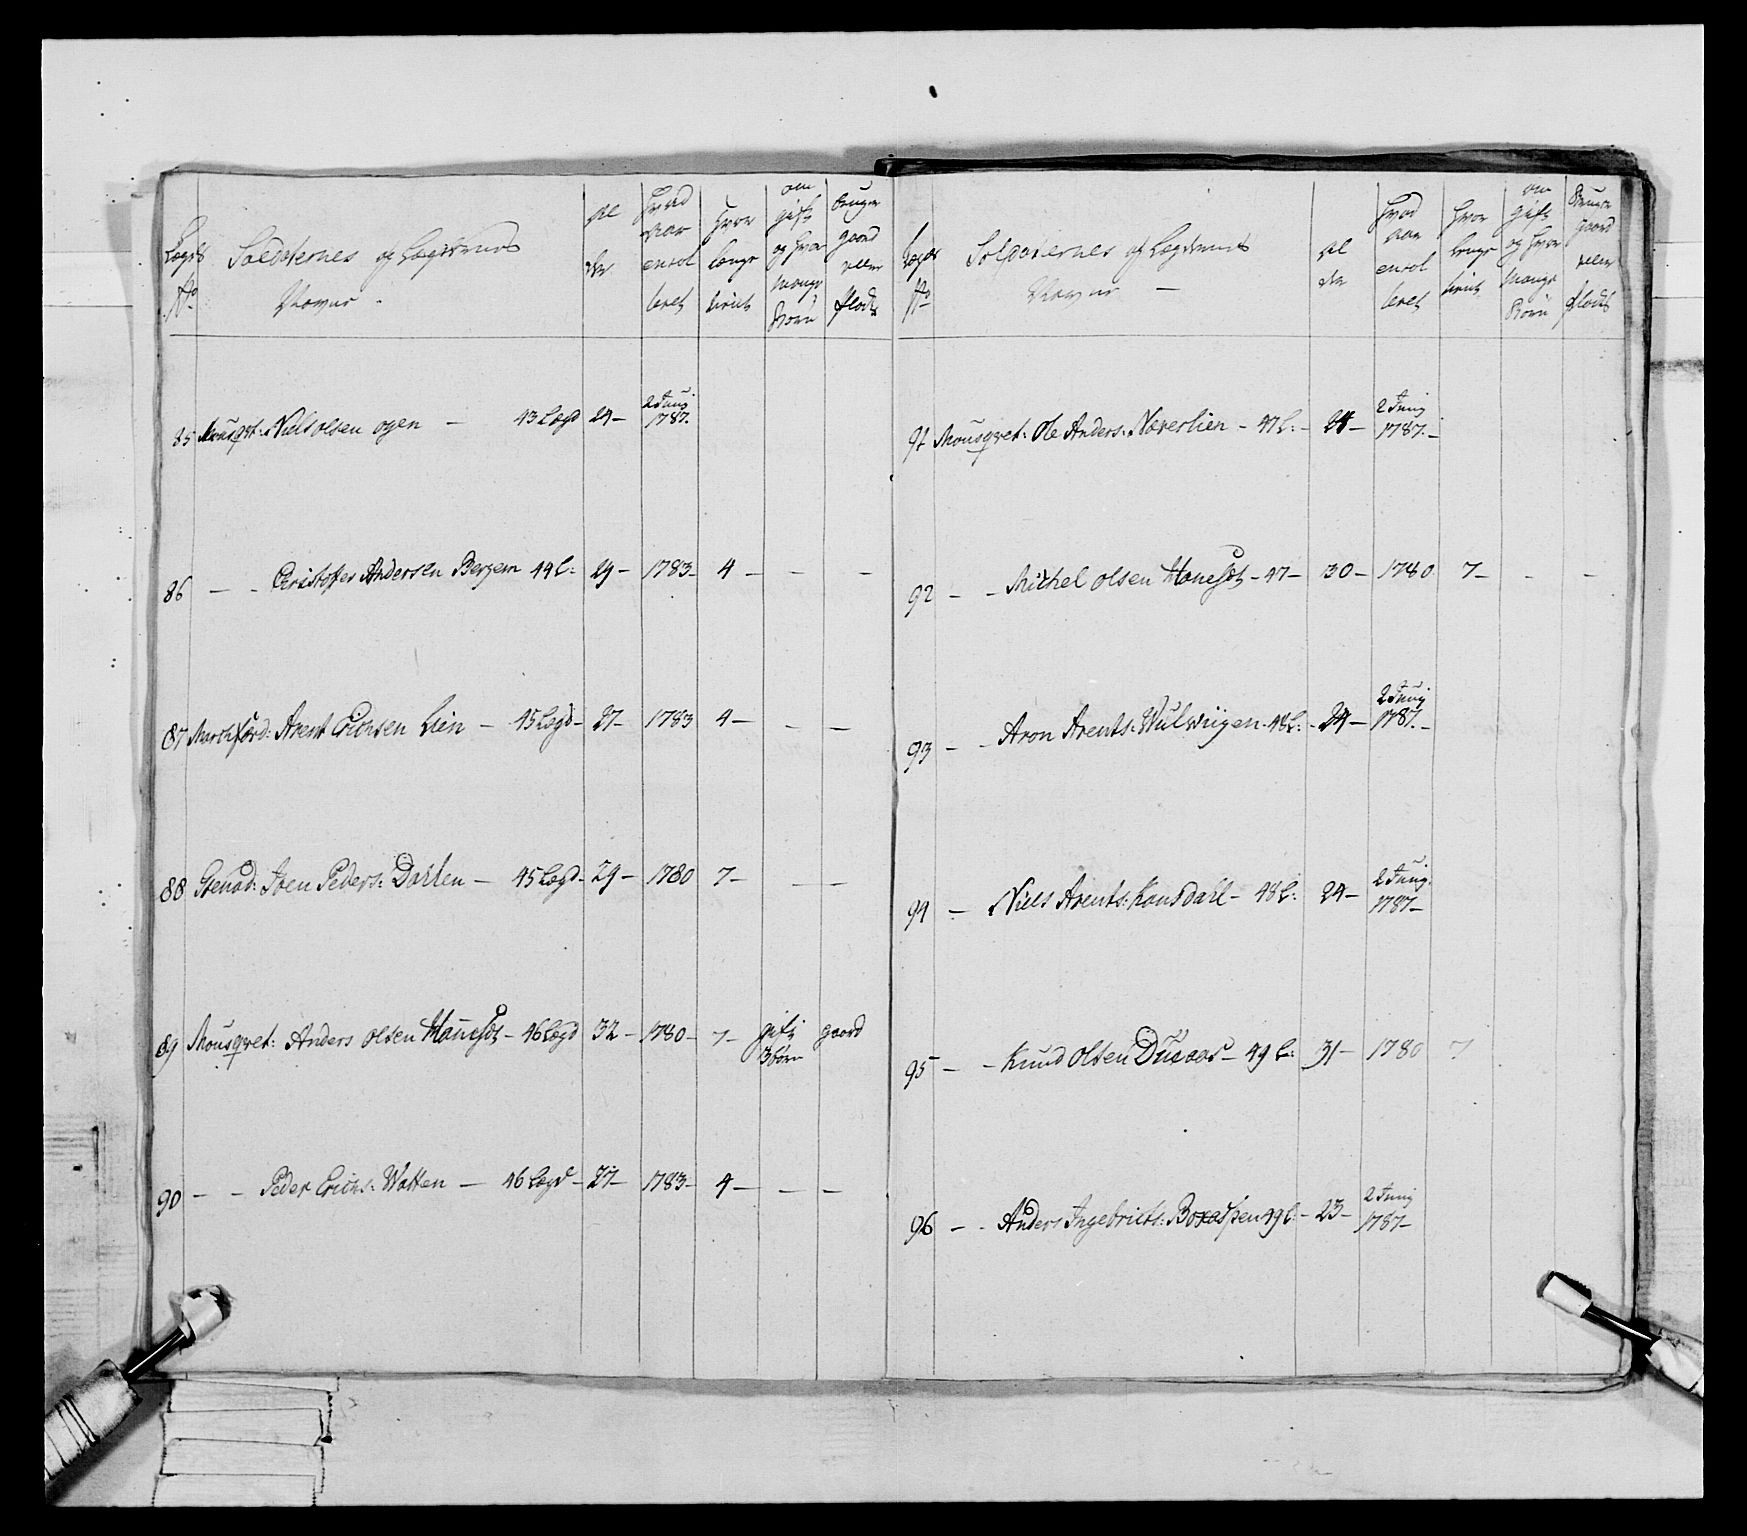 Lægds No
Soldaternes og Lægdernes Navne
Al der
Hvad Aar enrol leret
Hvor længe tient
om gift og hvor mange Børn
Bruger gaard eller Plads
85 Mousqvt: Niels olsen ogen — 43 Lægd 24 — 2 Junj 1787.
86 — - Christoffer Andersen Bergem 44 L: 29 — 1783 — 4 — — —
87 Arent Erichsen Lien — 45 Lægd — 27 — 1783 4 — — —
88 Grenad: Joen Peders: Dahlen — 45 Lægd — 29 — 1780 7 — — —
89 Mousqvet: Anders olsen — 46 Lægd 32 — 1780 — 7 — gift 3 børn gaard
90 — — Peder Erichs: Watten — 46 Lægd — 27 — 1783 — 4 — — —
Lægds No
Soldaternes og Lægdernes Navne —
Al der
Hvad Aar enrol leret
Hvor længe tient
om gift og hvor mange Børn
Bruger gaard eller Plads
91 Mousqvet: Ole Anders: Næverlien — 47 L: — 24 — 2 Junj 1787. —
92 — - Michel olsen — 47 — 30 — 1780 7 — - —
93 — - Aron Arents: Wulwiigen - 48 L: - 24 — 2 Junj 1787. —
94 — Niels Arents: Konsdahl — 48 L: 24 — 2 Junj 1787 —
95 — - Knud Olsen Duaas — 49 L: 31 — 1780 7
96 — - Anders Ingebricts: 49 L: — 23 — 2 Junj 1787 —